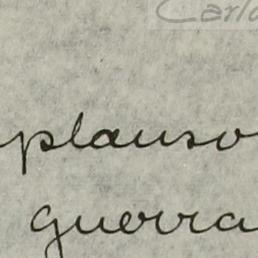 Carlo
plauso
guerra